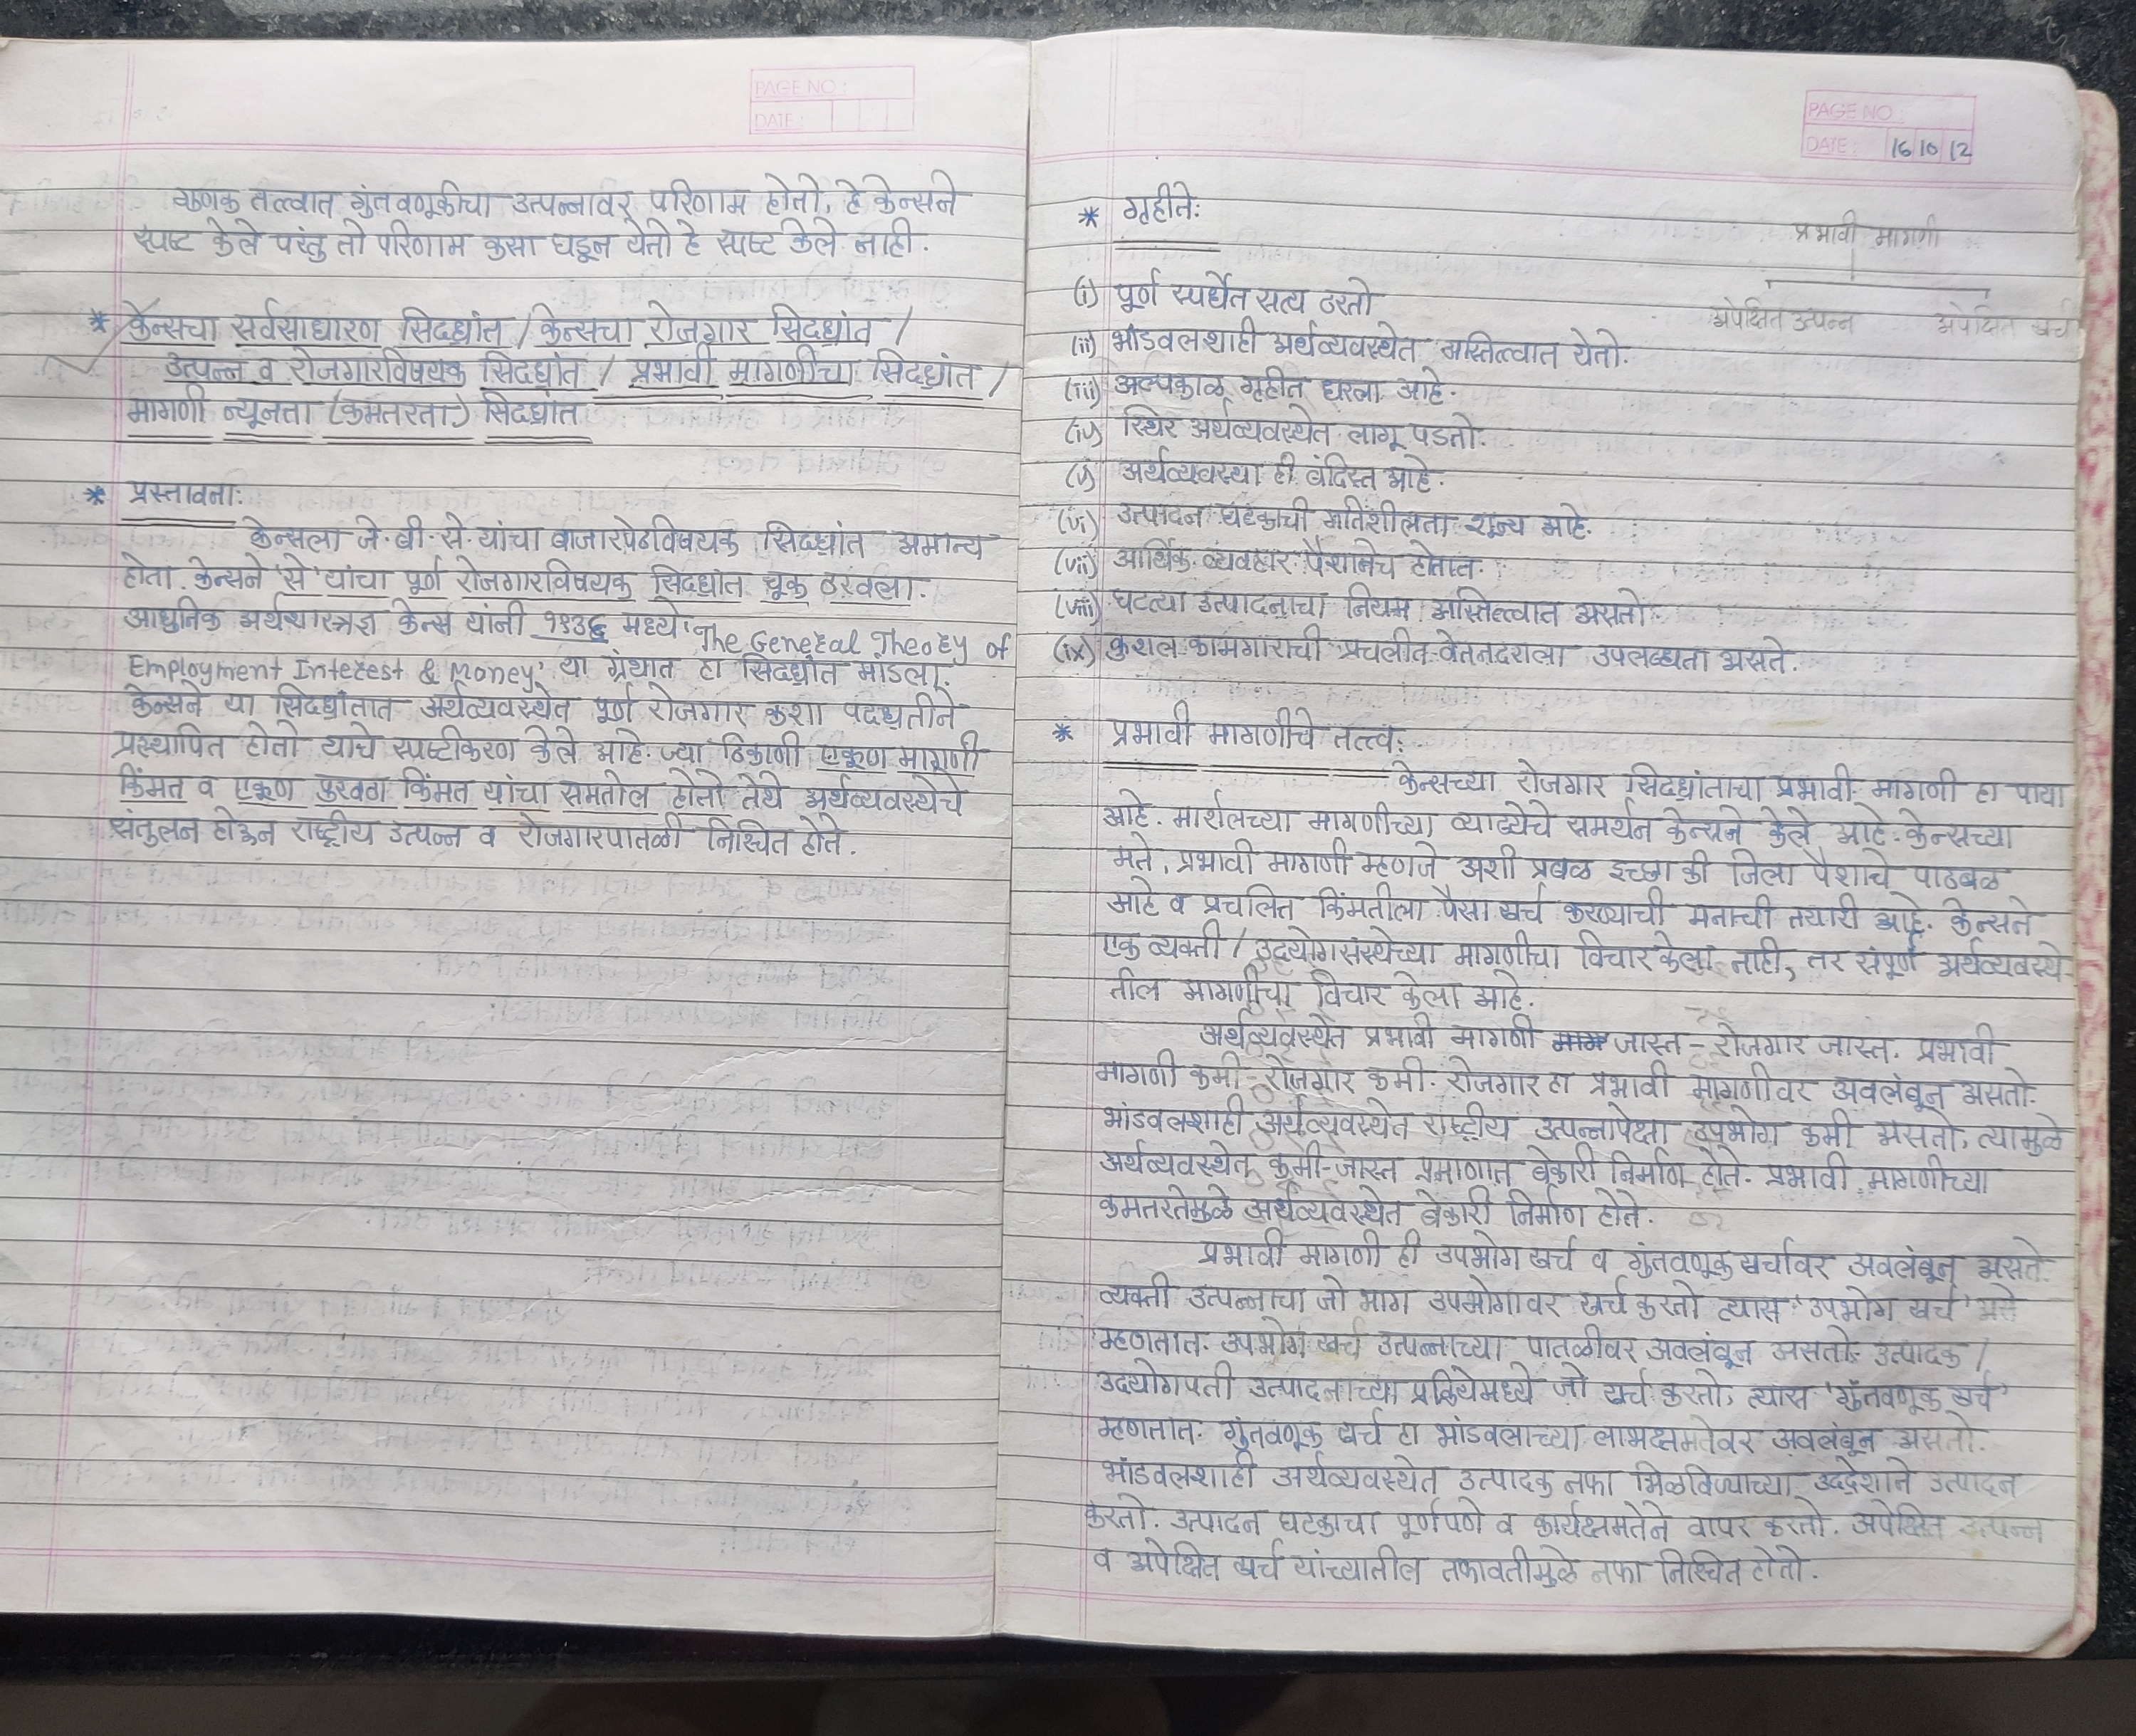 PAGE NO :
DATE :
गुणक तत्त्वात गुंतवणूकीचा उत्पन्नावर परिणाम होतो, हे केन्सने
स्पष्ट केले परंतु तो परिणाम कसा घडून येतो हे स्पष्ट केले नाही.
* केन्सचा सर्वसाधारण सिद्धांत / केन्सचा रोजगार सिद्धांत /
उत्पन्न व रोजगारविषयक सिद्धांत / प्रभावी मागणीचा सिद्धांत /
मागणी न्यूनता (कमतरता) सिद्धांत
* प्रस्तावना:
केन्सला जे. बी. से. यांचा बाजारपेठविषयक सिद्धांत अमान्य
होता. केन्सने 'से' यांचा पूर्ण रोजगारविषयक सिद्धांत चूक ठरवला.
आधुनिक अर्थशास्त्रज्ञ केन्स यांनी १९३६ मध्ये 'The General Theory of
Employment Interest & Money' या ग्रंथात हा सिद्धांत मांडला.
केन्सने या सिद्धांतात अर्थव्यवस्थेत पूर्ण रोजगार कशा पद्धतीने
प्रस्थापित होतो याचे स्पष्टीकरण केले आहे. ज्या ठिकाणी एकूण मागणी
किंमत व एकूण पुरवठा किंमत यांचा समतोल होतो तेथे अर्थव्यवस्थेचे
संतुलन होऊन राष्ट्रीय उत्पन्न व रोजगारपातळी निश्चित होते.
PAGE NO :
DATE : 16 10 12
* गृहीते:
प्रभावी मागणी
अपेक्षित उत्पन्न अपेक्षित खर्च
(i) पूर्ण स्पर्धेत सत्य ठरतो
(ii) भांडवलशाही अर्थव्यवस्थेत अस्तित्वात येतो.
(iii) अल्पकाळ गृहीत धरला आहे.
(iv) स्थिर अर्थव्यवस्थेत लागू पडतो.
(v) अर्थव्यवस्था ही बंदिस्त आहे.
(vi) उत्पादन घटकाची गतिशीलता शून्य आहे.
(vii) आर्थिक व्यवहार पैशानेच होतात.
(viii) घटत्या उत्पादनाचा नियम अस्तित्वात असतो.
(ix) कुशल कामगाराची प्रचलीत वेतनदराला उपलब्धता असते.
* प्रभावी मागणीचे तत्त्व:
केन्सच्या रोजगार सिद्धांताचा प्रभावी मागणी हा पाया
आहे. मार्शलच्या मागणीच्या व्याख्येचे समर्थन केन्सने केले आहे. केन्सच्या
मते, प्रभावी मागणी म्हणजे अशी प्रबळ इच्छा की जिला पैशाचे पाठबळ
आहे व प्रचलित किंमतीला पैसा खर्च करण्याची मनाची तयारी आहे. केन्सने
एक व्यक्ती / उद्योगसंस्थेच्या मागणीचा विचार केला नाही, तर संपूर्ण अर्थव्यवस्थे-
तील मागणीचा विचार केला आहे.
अर्थव्यवस्थेत प्रभावी मागणी जास्त - रोजगार जास्त. प्रभावी
मागणी कमी - रोजगार कमी. रोजगार हा प्रभावी मागणीवर अवलंबून असतो.
भांडवलशाही अर्थव्यवस्थेत राष्ट्रीय उत्पन्नापेक्षा उपभोग कमी असतो, त्यामुळे
अर्थव्यवस्थेत कमी-जास्त प्रमाणात बेकारी निर्माण होते. प्रभावी मागणीच्या
कमतरतेमुळे अर्थव्यवस्थेत बेकारी निर्माण होते.
प्रभावी मागणी ही उपभोग खर्च व गुंतवणूक खर्चावर अवलंबून असते.
व्यक्ती उत्पन्नाचा जो भाग उपभोगावर खर्च करतो त्यास 'उपभोग खर्च' असे
म्हणतात. उपभोग खर्च उत्पन्नाच्या पातळीवर अवलंबून असतो. उत्पादक /
उद्योगपती उत्पादनाच्या प्रक्रियेमध्ये जो खर्च करतो, त्यास 'गुंतवणूक खर्च'
म्हणतात. गुंतवणूक खर्च हा भांडवलाच्या लाभक्षमतेवर अवलंबून असतो.
भांडवलशाही अर्थव्यवस्थेत उत्पादक नफा मिळविण्याच्या उद्देशाने उत्पादन
करतो. उत्पादन घटकाचा पूर्णपणे व कार्यक्षमतेने वापर करतो. अपेक्षित उत्पन्न
व अपेक्षित खर्च यांच्यातील तफावतीमुळे नफा निश्चित होतो.